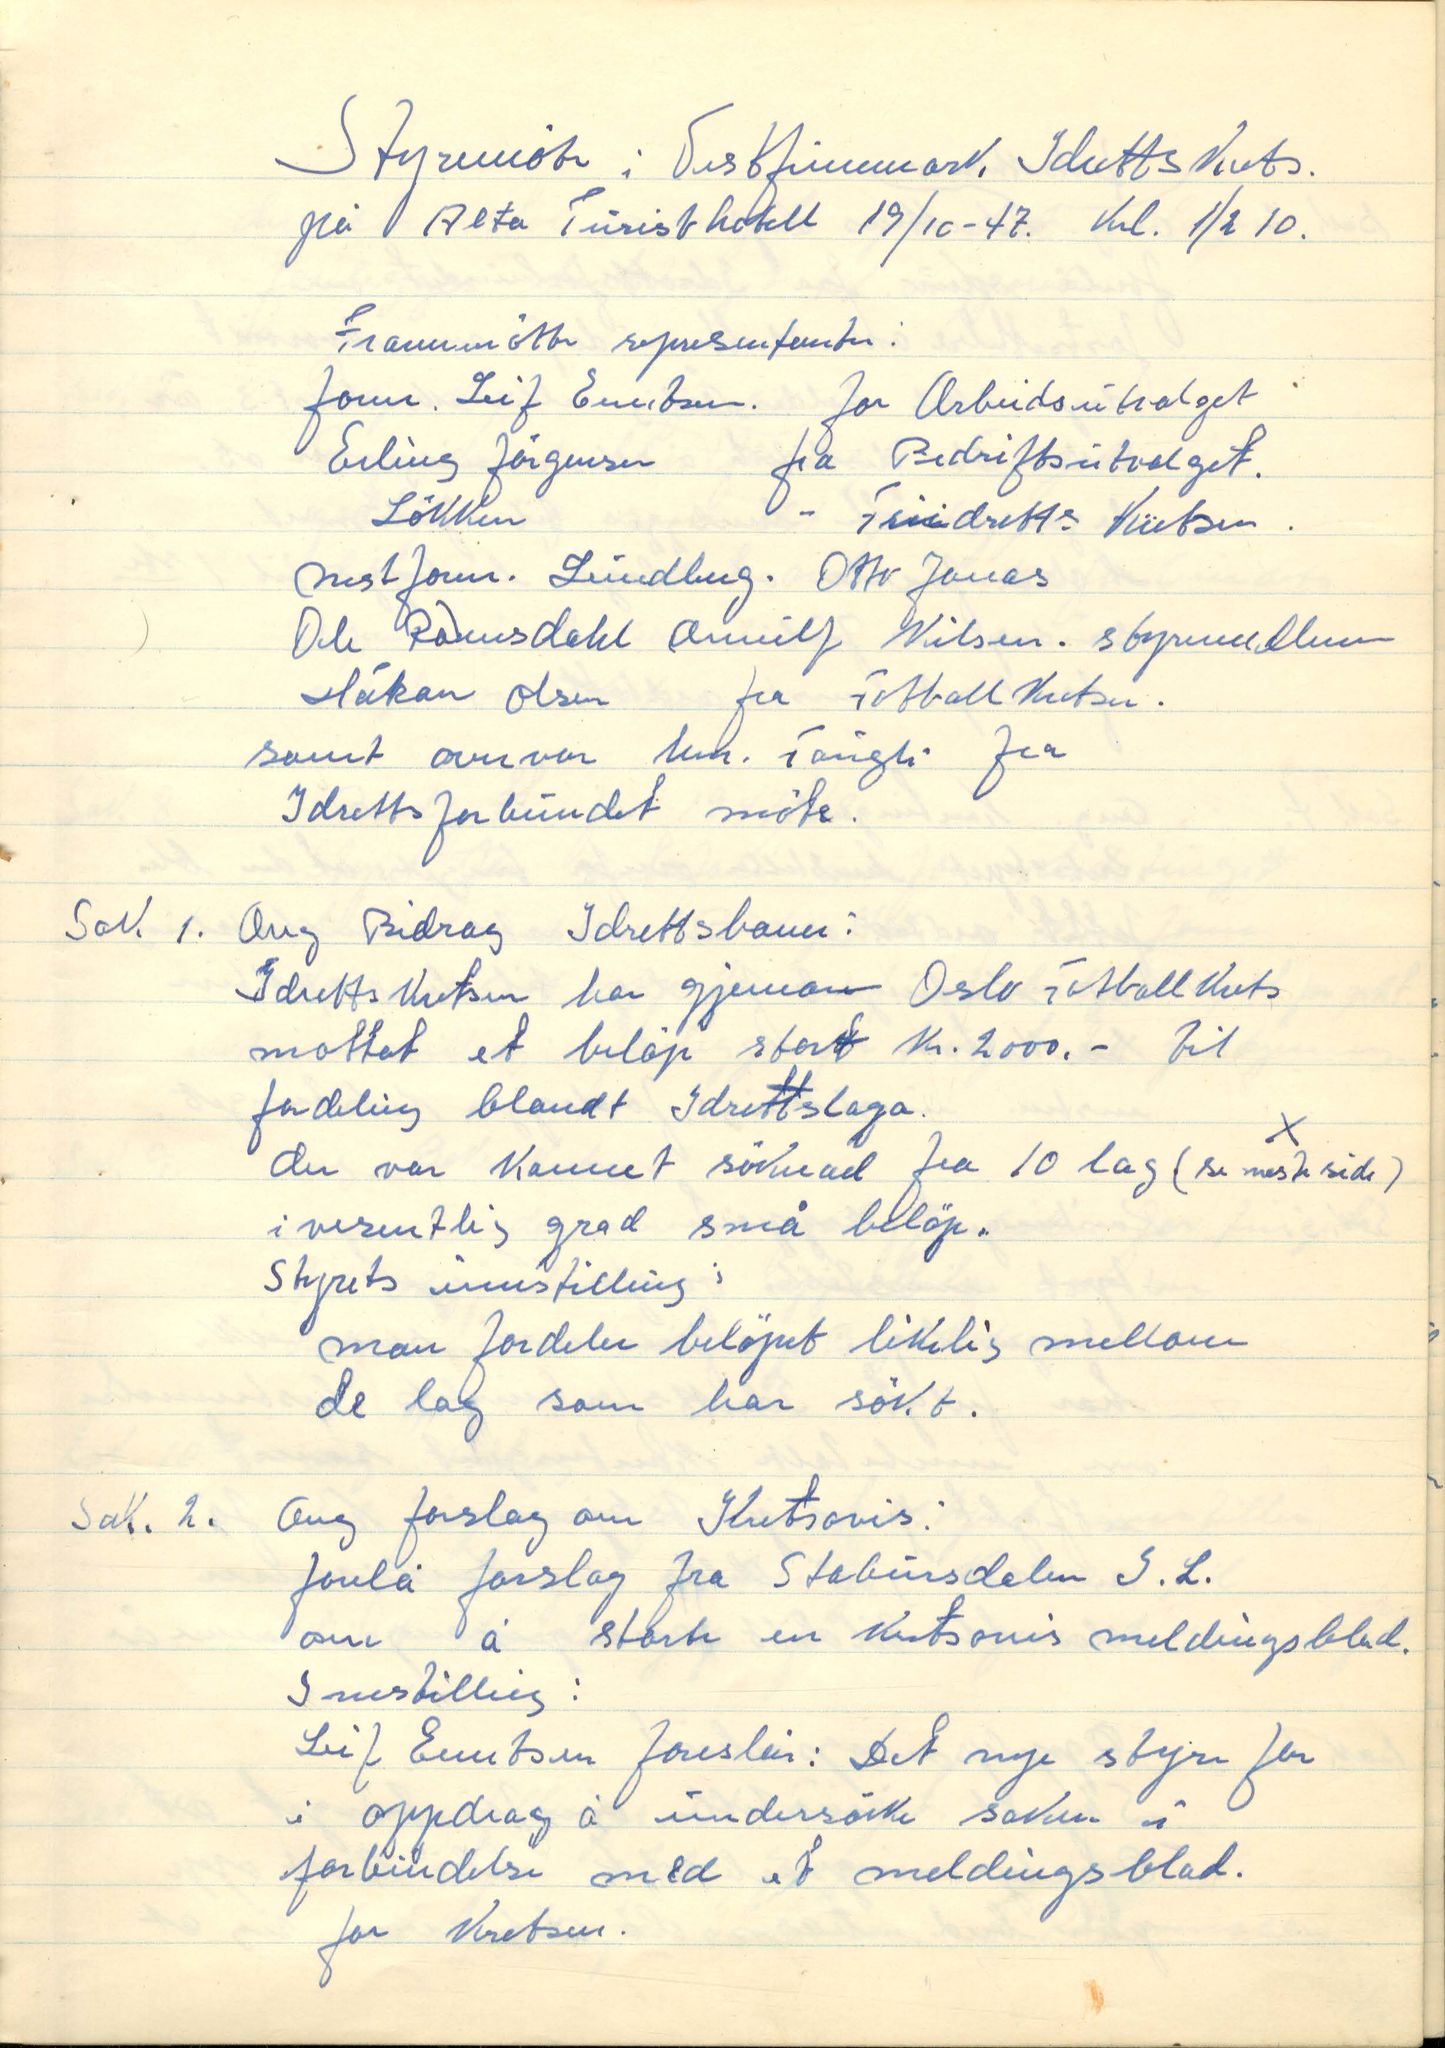 Styremöte i Vestfinnmark Idrettskrets.
på Alta Turisthotell 19/10-47. Kl. 1/2 10.
Frammötte representanter:
form. Leif Evertsen. for Arbeidsutvalget
Erling Jörgensen fra Bedriftsutvalget.
Lökken - Friidretts Kretsen.
nestform. Lundberg. Otto Jonas
Ole Ramsdahl Arnulf Nilsen. styremedlem
Håkan Olsen fra Fotballkretsen.
samt overvar hrr. Tangli fra
Idrettsforbundet möte.
Sak 1. Ang Bidrag Idrettsbaner:
Idrettskretsen har gjenom Oslo Fotballkrets
mottat et belöp stort kr. 2000.- til
fordeling blandt Idrettslaga.
X
der var kommet söknad fra 10 lag (se neste side)
i vesentlig grad små belöp.
Styrets innstilling:
man fordeler belöpet likelig mellom
de lag som har sökt.
Sak. 2. Ang forslag om Kretsavis:
forelå forslag fra Stabursdalen I.L.
om å starte en kretsavis meldingsblad.
Innstilling:
Leif Evertsen foreslår: Det nye styre får
i oppdrag å undersöke saken i
forbindelse med et meldingsblad.
for kretsen.